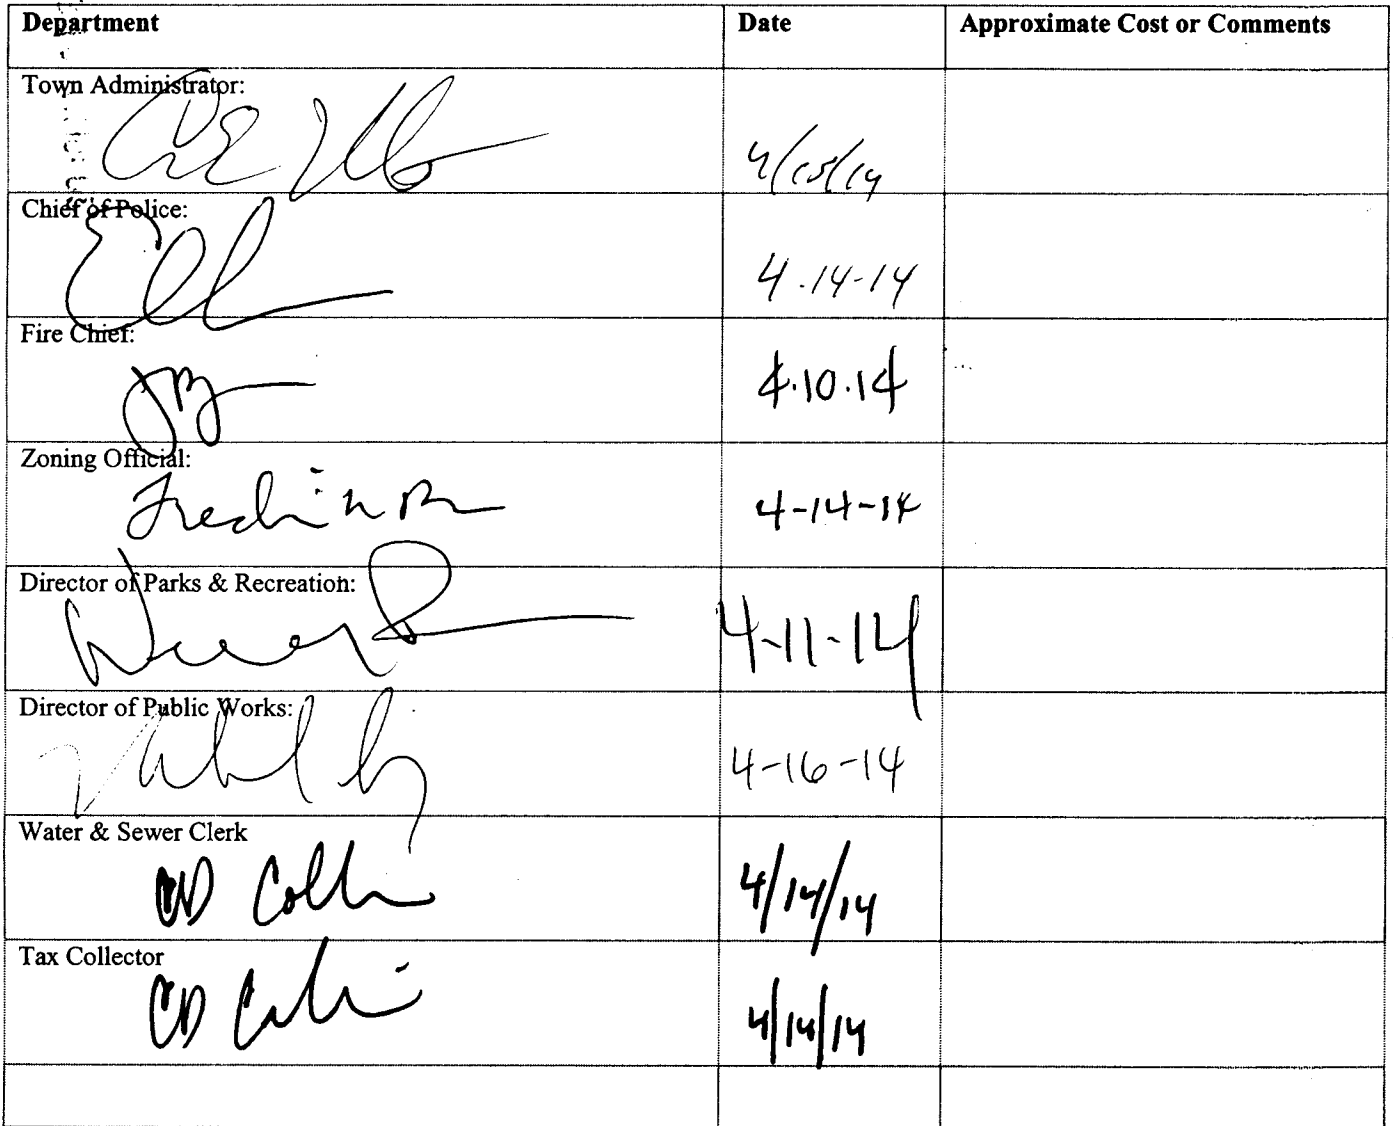 Department Date Approximate Cost or Comments
Town Administrator:
4/15/14
Chief of Police:
4.14-14
Fire Chief:
4.10.14
Zoning Official:
4-14-14
Director of Parks & Recreation:
4-11-14
Director of Public Works:
4-16-14
Water & Sewer Clerk
CD Collin 4/14/14
Tax Collector
CD Collin 4/14/14